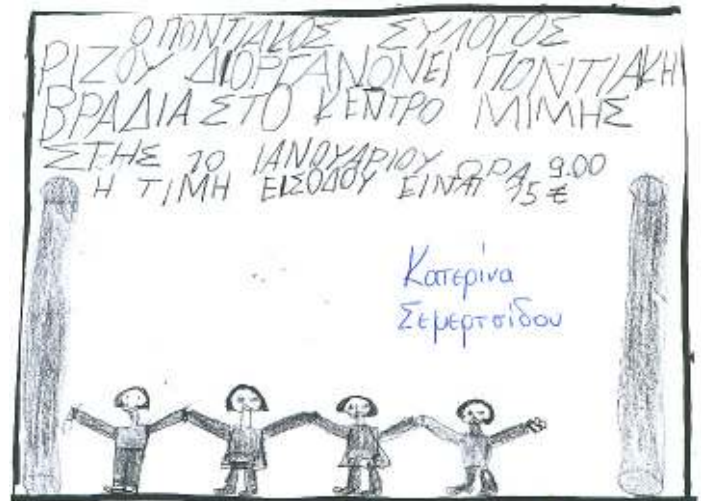 Ο ΠΟΝΤΙΑΚΟΣ ΣΥΛΟΓΟΣ
ΡΙΖΟΥ ΔΙΟΡΓΑΝΟΝΕΙ ΠΟΝΤΙΑΚΗ
ΒΡΑΔΙΑ ΣΤΟ ΚΕΝΤΡΟ ΜΙΜΗΣ
ΣΤΗΣ 20 ΙΑΝΟΥΑΡΙΟΥ ΩΡΑ 9.00
Η ΤΙΜΗ ΕΙΣΟΔΟΥ ΕΙΝΑΙ 15 €
Κατερίνα
Σεμερτσίδου